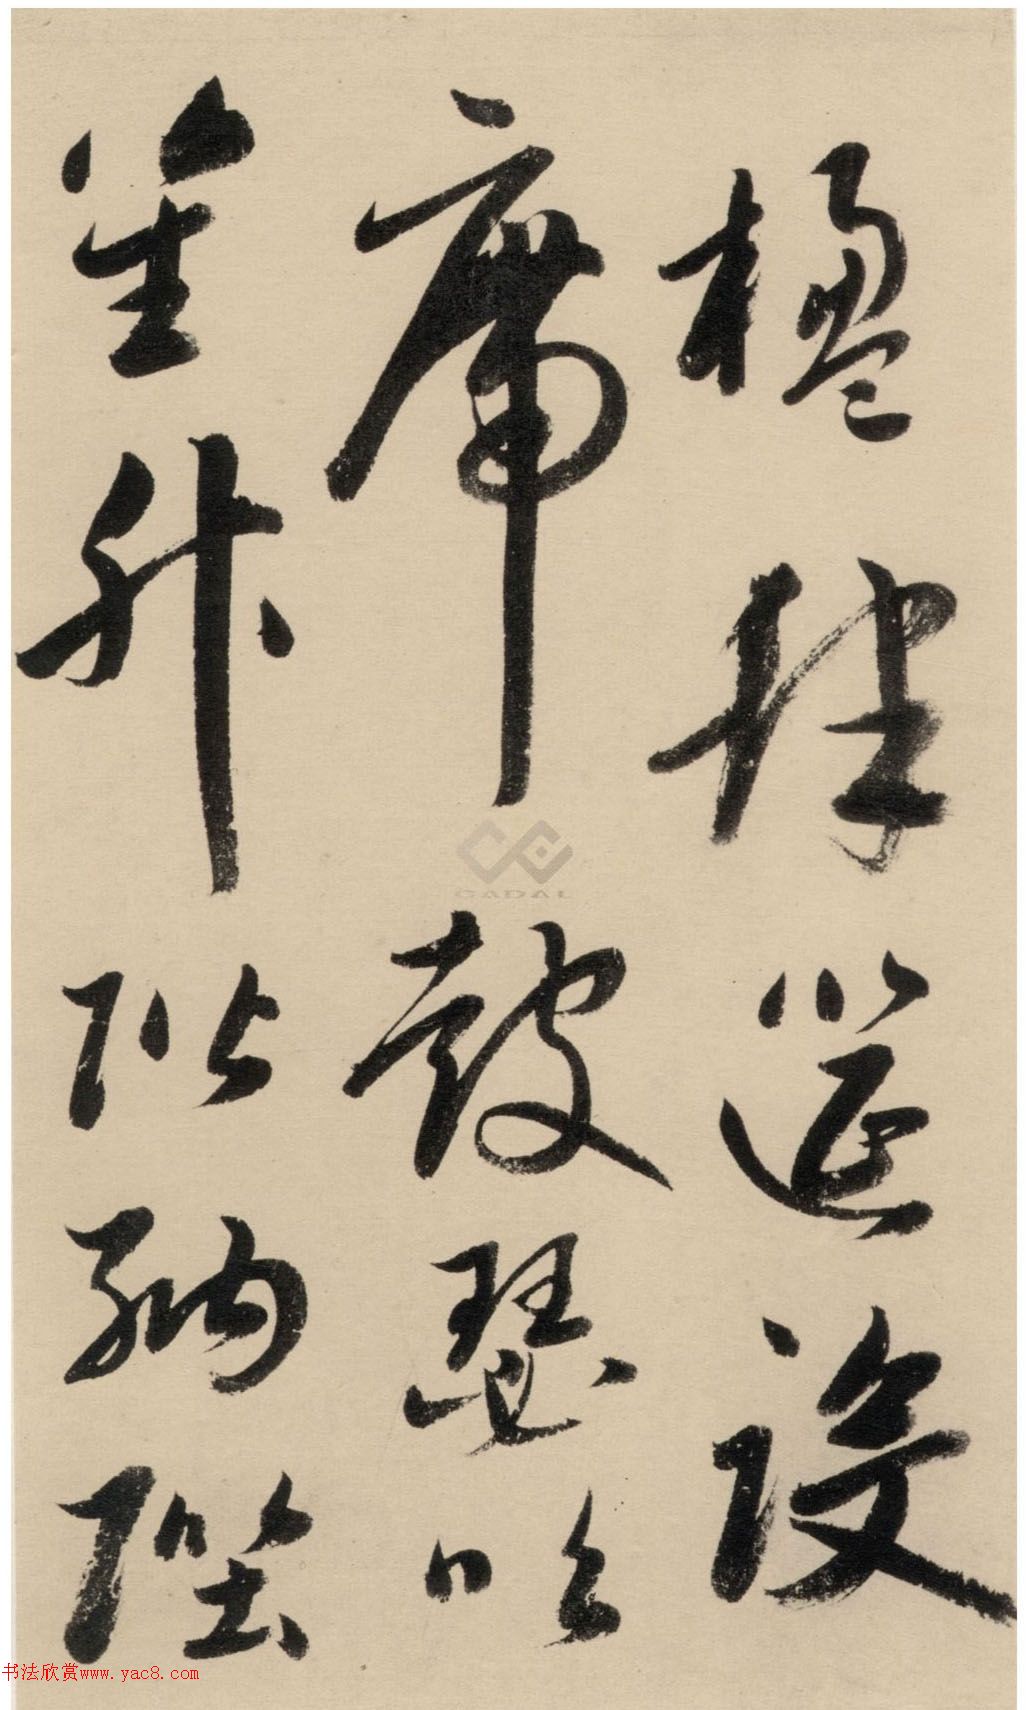 楹肆筵设
席鼓瑟吹
笙升阶纳陛
CADAL
书法欣赏www.yac8.com